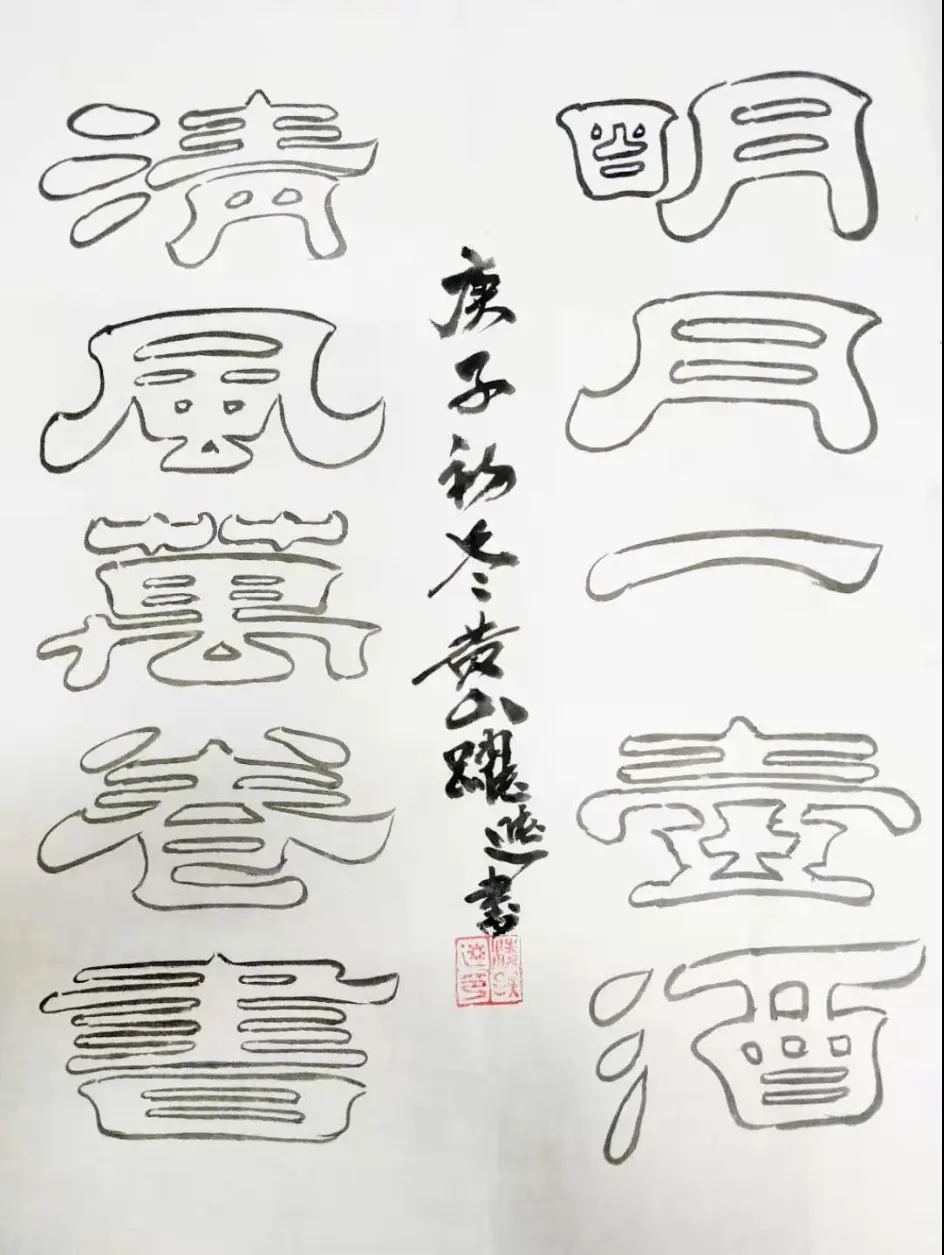 明月一壺酒
清風萬卷書
庚子初冬黄山躍進書